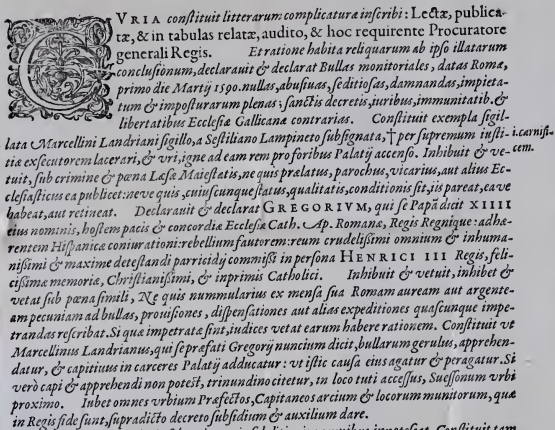 CVRIA constituit litterarum complicaturæ inscribi: Lectæ, publica-
tæ, & in tabulas relatæ, audito, & hoc requirente Procuratore
generali Regis. Et ratione habita reliquarum ab ipso illatarum
conclusionum, declarauit & declarat Bullas monitoriales, datas Romæ,
primo die Martij 1590. nullas, abusiuas, seditiosas, damnandas, impieta-
tum & imposturarum plenas; sanctis decretis, iuribus, immunitatib. &
libertatibus Ecclesiæ Gallicanæ contrarias. Constituit exempla sigil-
lata Marcellini Landriani sigillo, a Sestiliano Lampineto subsignata, † per supremum iusti- i. carnifi-
tiæ executorem lacerari, & vri, igne ad eam rem pro foribus Palatij accenso. Inhibuit & ve- cem.
tuit, sub crimine & pœna Læsæ Maiestatis, ne quis prælatus, parochus, vicarius, aut alius Ec-
clesiasticus ea publicet: neue quis, cuiuscunque status, qualitatis, conditionis sit, iis pareat, ea ve
habeat, aut retineat. Declarauit & declarat GREGORIVM, qui se Papā dicit XIIII
eius nominis, hostem pacis & concordiæ Ecclesiæ Cath. Ap. Romanæ, Regis Regnique: adhæ-
rentem Hispanicæ coniurationi: rebellium fautorem: reum crudelissimi omnium & inhuma-
nissimi & maxime detestandi parricidij commissi in persona HENRICI III Regis, feli-
cissimæ memoriæ, Christianissimi, & inprimis Catholici. Inhibuit & vetuit, inhibet &
vetat sub pœna simili, Ne quis nummularius ex mensa sua Romam auream aut argente-
am pecuniam ad bullas, prouisiones, dispensationes aut alias expeditiones quascunque impe-
trandas rescribat. Si quæ impetratæ sint, iudices vetat earum habere rationem. Constituit vt
Marcellinus Landrianus, qui se præfati Gregorij nuncium dicit, bullarum gerulus, apprehen-
datur, & captiuus in carceres Palatij adducatur: vt istic causa eius agatur & peragatur. Si
verò capi & apprehendi non potest, trinundino citetur, in loco tuti accessus, Suessonum vrbi
proximo. Iubet omnes vrbium Præfectos, Capitaneos arcium & locorum munitorum, quæ
in Regis fide sunt, supradicto decreto subsidium & auxilium dare.